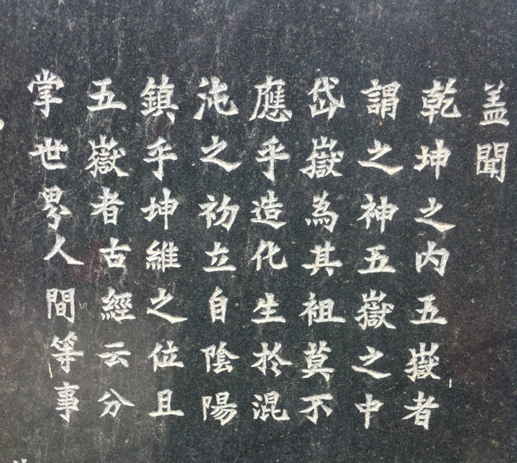 盖聞
乾坤之内五嶽者
謂之神五嶽之中
岱嶽為其祖莫不
應乎造化生於混
沌之初立自陰陽
鎮乎坤維之位且
五嶽者古經云分
掌世界人間等事